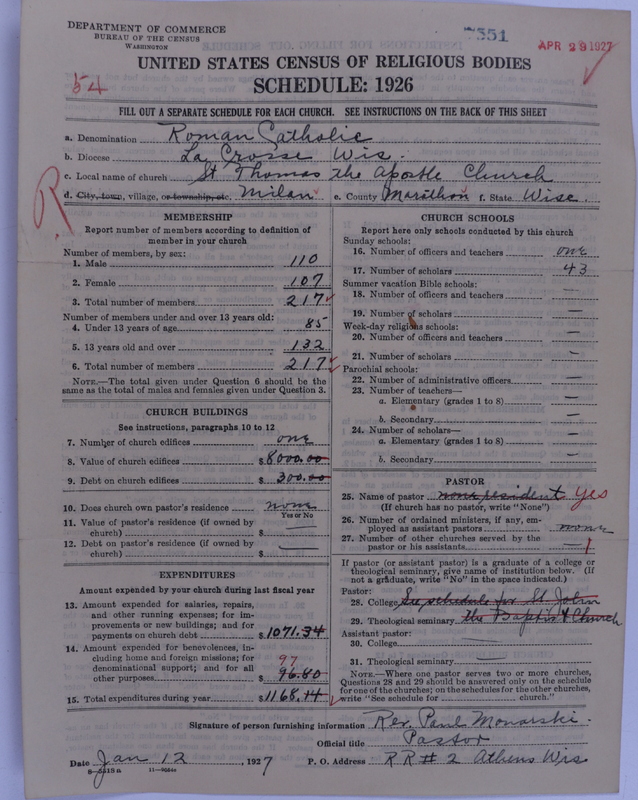 DEPARTMENT OF COMMERCE
BUREAU OF THE CENSUS
WASHINGTON
551
APR 29 1927
UNITED STATES CENSUS OF RELIGIOUS BODIES
54
SCHEDULE: 1926
FILL OUT A SEPARATE SCHEDULE FOR EACH CHURCH. SEE INSTRUCTIONS ON THE BACK OF THIS SHEET
a. Denomination Roman Catholic
b. Diocese La Crosse Wis.
c. Local name of church St Thomas the Apostle Church
R
d. City, town, village, or township, etc. Milan e. County Marathon f. State Wisc.
MEMBERSHIP
Report number of members according to definition of member in your church
Number of members, by sex:
1. Male 110
2. Female 107
3. Total number of members 217
Number of members under and over 13 years old:
4. Under 13 years of age 85
5. 13 years old and over 132
6. Total number of members 217
NOTE.—The total given under Question 6 should be the
same as the total of males and females given under Question 3.
CHURCH BUILDINGS
See instructions, paragraphs 10 to 12
7. Number of church edifices one
8. Value of church edifices $8000.00
9. Debt on church edifices $300.00
10. Does church own pastor's residence none
Yes or No
11. Value of pastor's residence (if owned by
church) $
12. Debt on pastor's residence (if owned by
church) $ —
EXPENDITURES
Amount expended by your church during last fiscal year
13. Amount expended for salaries, repairs,
and other running expenses; for im-
provements or new buildings; and for
payments on church debt $1071.34
14. Amount expended for benevolences, in-
cluding home and foreign missions; for
denominational support; and for all
other purposes $ 97 96.80
15. Total expenditures during year $1168.14
CHURCH SCHOOLS
Report here only schools conducted by this church
Sunday schools:
16. Number of officers and teachers one
17. Number of scholars 43
Summer vacation Bible schools:
18. Number of officers and teachers —
19. Number of scholars —
Week-day religious schools:
20. Number of officers and teachers —
21. Number of scholars —
Parochial schools:
22. Number of administrative officers —
23. Number of teachers—
a. Elementary (grades 1 to 8) —
b. Secondary —
24. Number of scholars—
a. Elementary (grades 1 to 8) —
b. Secondary —
PASTOR
25. Name of pastor none resident Yes
(If church has no pastor, write "None")
26. Number of ordained ministers, if any, em-
ployed as assistant pastors none
27. Number of other churches served by the
pastor or his assistants — 1
If pastor (or assistant pastor) is a graduate of a college or
theological seminary, give name of institution below. (If
not a graduate, write "No" in the space indicated.)
Pastor:
28. College See schedule for St John
29. Theological seminary the Baptist Church
Assistant pastor:
30. College
31. Theological seminary —
NOTE.—Where one pastor serves two or more churches,
Questions 28 and 29 should be answered only on the schedule
for one of the churches; on the schedules for the other churches,
write "See schedule for church."
Signature of person furnishing information Rev. Paul Monarski.
Official title Pastor
Date Jan 12, 1927 P. O. Address RR # 2 Athens Wis